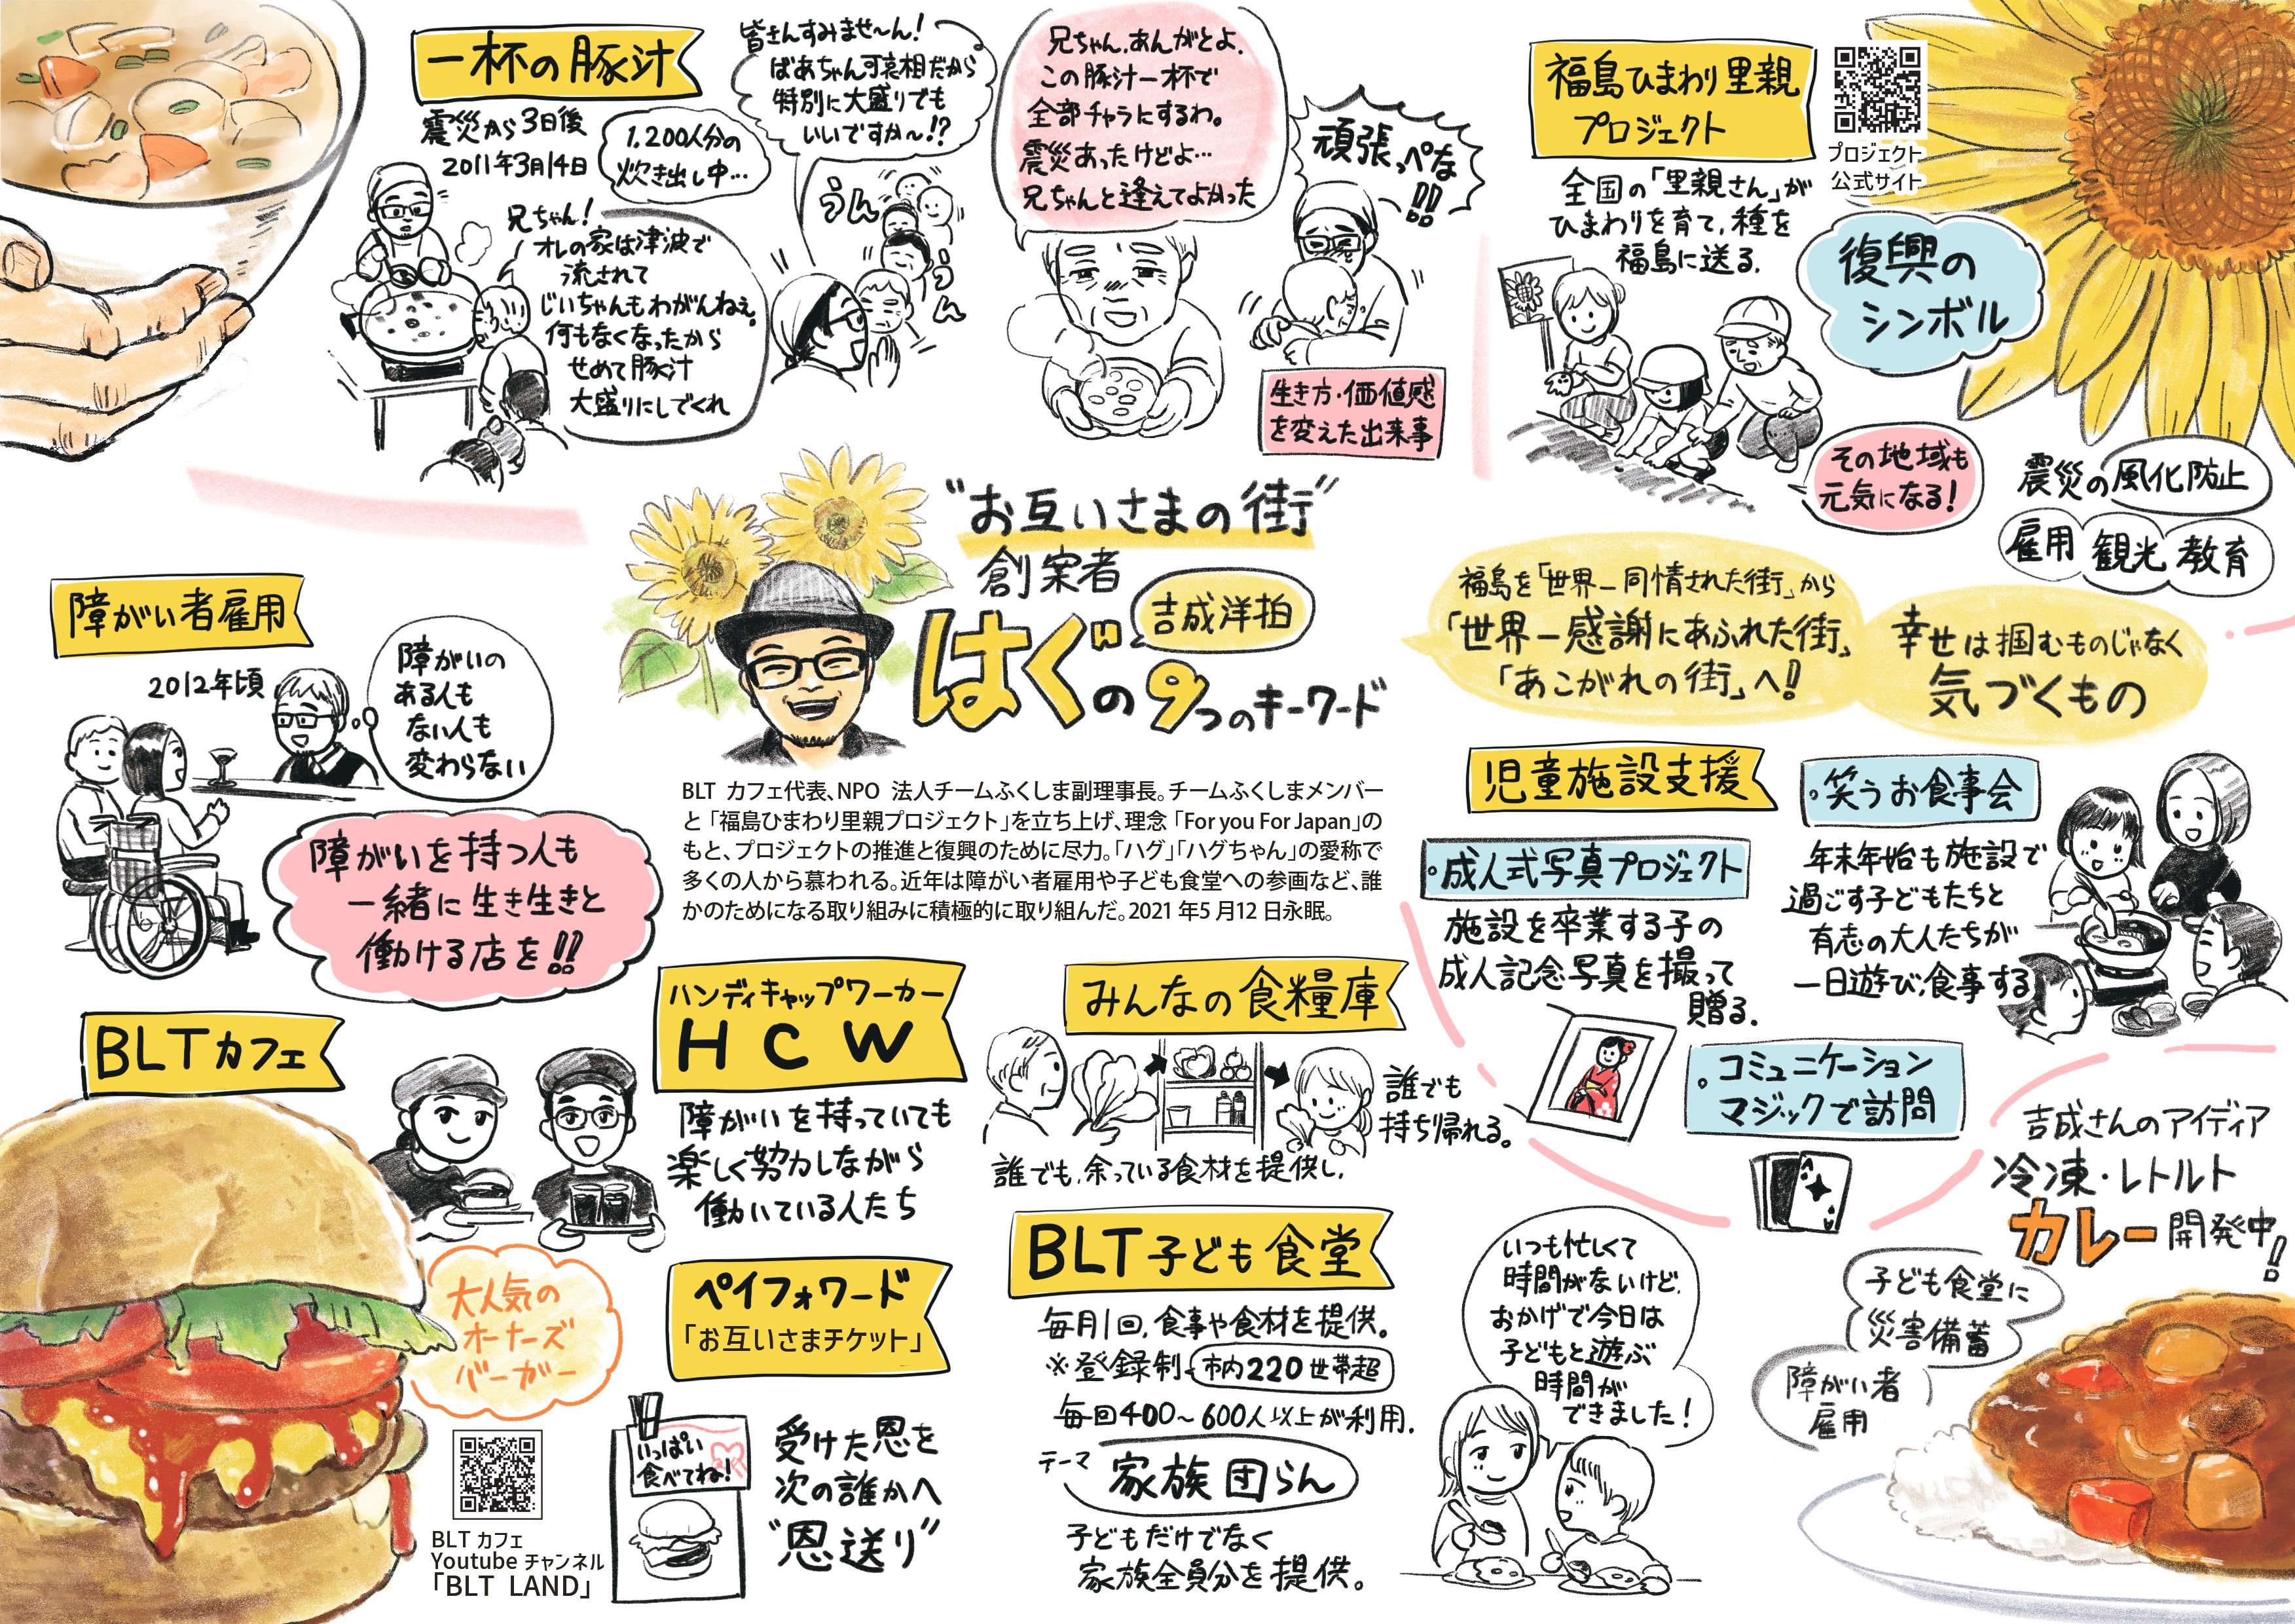 一杯の豚汁
震災から3日後
2011年3月14日
1,200人分の
炊き出し中…
兄ちゃん!
オレの家は津波で
流されて
じいちゃんもわがんねぇ。
何もなくなったから
せめて豚汁
大盛りにしでくれ
皆さんすみませ〜ん!
ばあちゃん可哀相だから
特別に大盛りでも
いいですか〜!?
うん
うん
兄ちゃん、あんがとよ、
この豚汁一杯で
全部チャラにするわ。
震災あったけどよ…
兄ちゃんと逢えてよかった
頑張っぺな
!!
生き方・価値感
を変えた出来事
福島ひまわり里親
プロジェクト
プロジェクト
公式サイト
全国の「里親さん」が
ひまわりを育て、種を
福島に送る.
復興の
シンボル
その地域も
元気になる!
震災の風化防止
雇用 観光 教育
福島を「世界一同情された街」から
「世界一感謝にあふれた街」
「あこがれの街」へ!
幸せは掴むものじゃなく
気づくもの
"お互いさまの街"
創案者
吉成洋拍
はぐの9つのキーワード
BLT カフェ代表、NPO 法人チームふくしま副理事長。チームふくしまメンバー
と「福島ひまわり里親プロジェクト」を立ち上げ、理念「For you For Japan」の
もと、プロジェクトの推進と復興のために尽力。「ハグ」「ハグちゃん」の愛称で
多くの人から慕われる。近年は障がい者雇用や子ども食堂への参画など、誰
かのためになる取り組みに積極的に取り組んだ。2021 年5 月12 日永眠。
障がい者雇用
2012年頃
障がいの
ある人も
ない人も
変わらない
障がいを持つ人も
一緒に生き生きと
働ける店を!!
BLTカフェ
大人気の
オーナーズ
バーガー
BLT カフェ
Youtube チャンネル
「BLT LAND」
ハンディキャップワーカー
HCW
障がいを持っていても
楽しく努力しながら
働いている人たち
ペイフォワード
「お互いさまチケット」
いっぱい
食べてね!
受けた恩を
次の誰かへ
"恩送り"
みんなの食糧庫
誰でも
持ち帰れる。
誰でも、余っている食材を提供し、
BLT子ども食堂
毎月1回、食事や食材を提供。
※登録制 市内220世帯超
毎回400〜600人以上が利用.
テーマ 家族団らん
子どもだけでなく
家族全員分を提供。
いつも忙しくて
時間がないけど、
おかげで今日は
子どもと遊ぶ
時間が
できました!
児童施設支援
。成人式写真プロジェクト
施設を卒業する子の
成人記念写真を撮って
贈る.
。笑うお食事会
年末年始も施設で
過ごす子どもたちと
有志の大人たちが
一日遊び、食事する
。コミュニケーション
マジックで訪問
吉成さんのアイディア
冷凍・レトルト
カレー開発中!
子ども食堂に
災害備蓄
障がい者
雇用